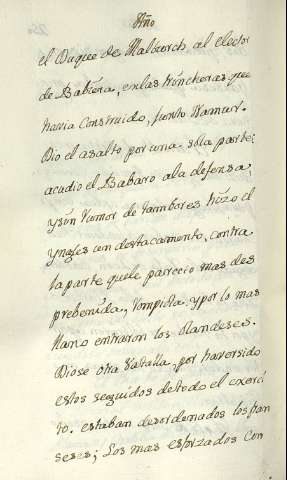 Año
el Duque de Malburch, al elector
de Babiera, en las trincheras que
havia Construido, Junto Namur.
Dio el asalto por una sola parte;
acudio el Babaro a la defensa,
y sin rumor de tambores hizo el
yngles un destacamento, contra
la parte que le parecio mas des
prebenida, rompiola, y por lo mas
llano entraron los olandeses.
Diose otra batalla, por haversido
estos seguidos de todo el exerci
to. estaban desordenados los fran
seses; Los mas esforzados Con